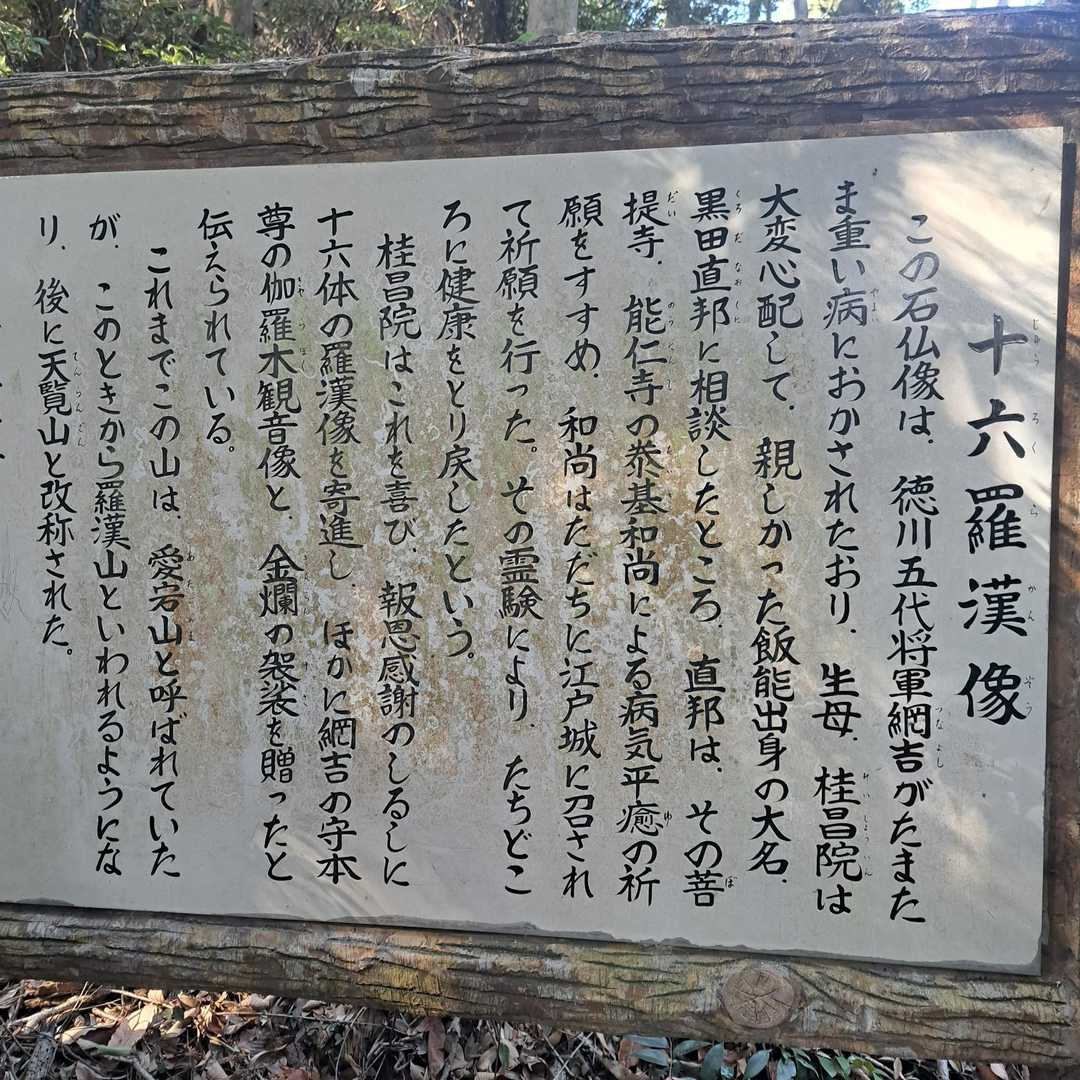 十六羅漢像
この石仏像は、徳川五代将軍綱吉がたまた
ま重い病におかされたおり、生母、桂昌院は
大変心配して、親しかった飯能出身の大名、
黒田直邦に相談したところ、直邦は、その菩
提寺、能仁寺の泰基和尚による病気平癒の祈
願をすすめ、和尚はただちに江戸城に召され
て祈願を行った。その霊験により、たちどこ
ろに健康をとり戻したという。
桂昌院はこれを喜び、報恩感謝のしるしに
十六体の羅漢像を寄進し、ほかに綱吉の守本
尊の伽羅木観音像と、金爛の袈裟を贈ったと
伝えられている。
これまでこの山は、愛宕山と呼ばれていた
が、このときから羅漢山といわれるようにな
り、後に天覧山と改称された。